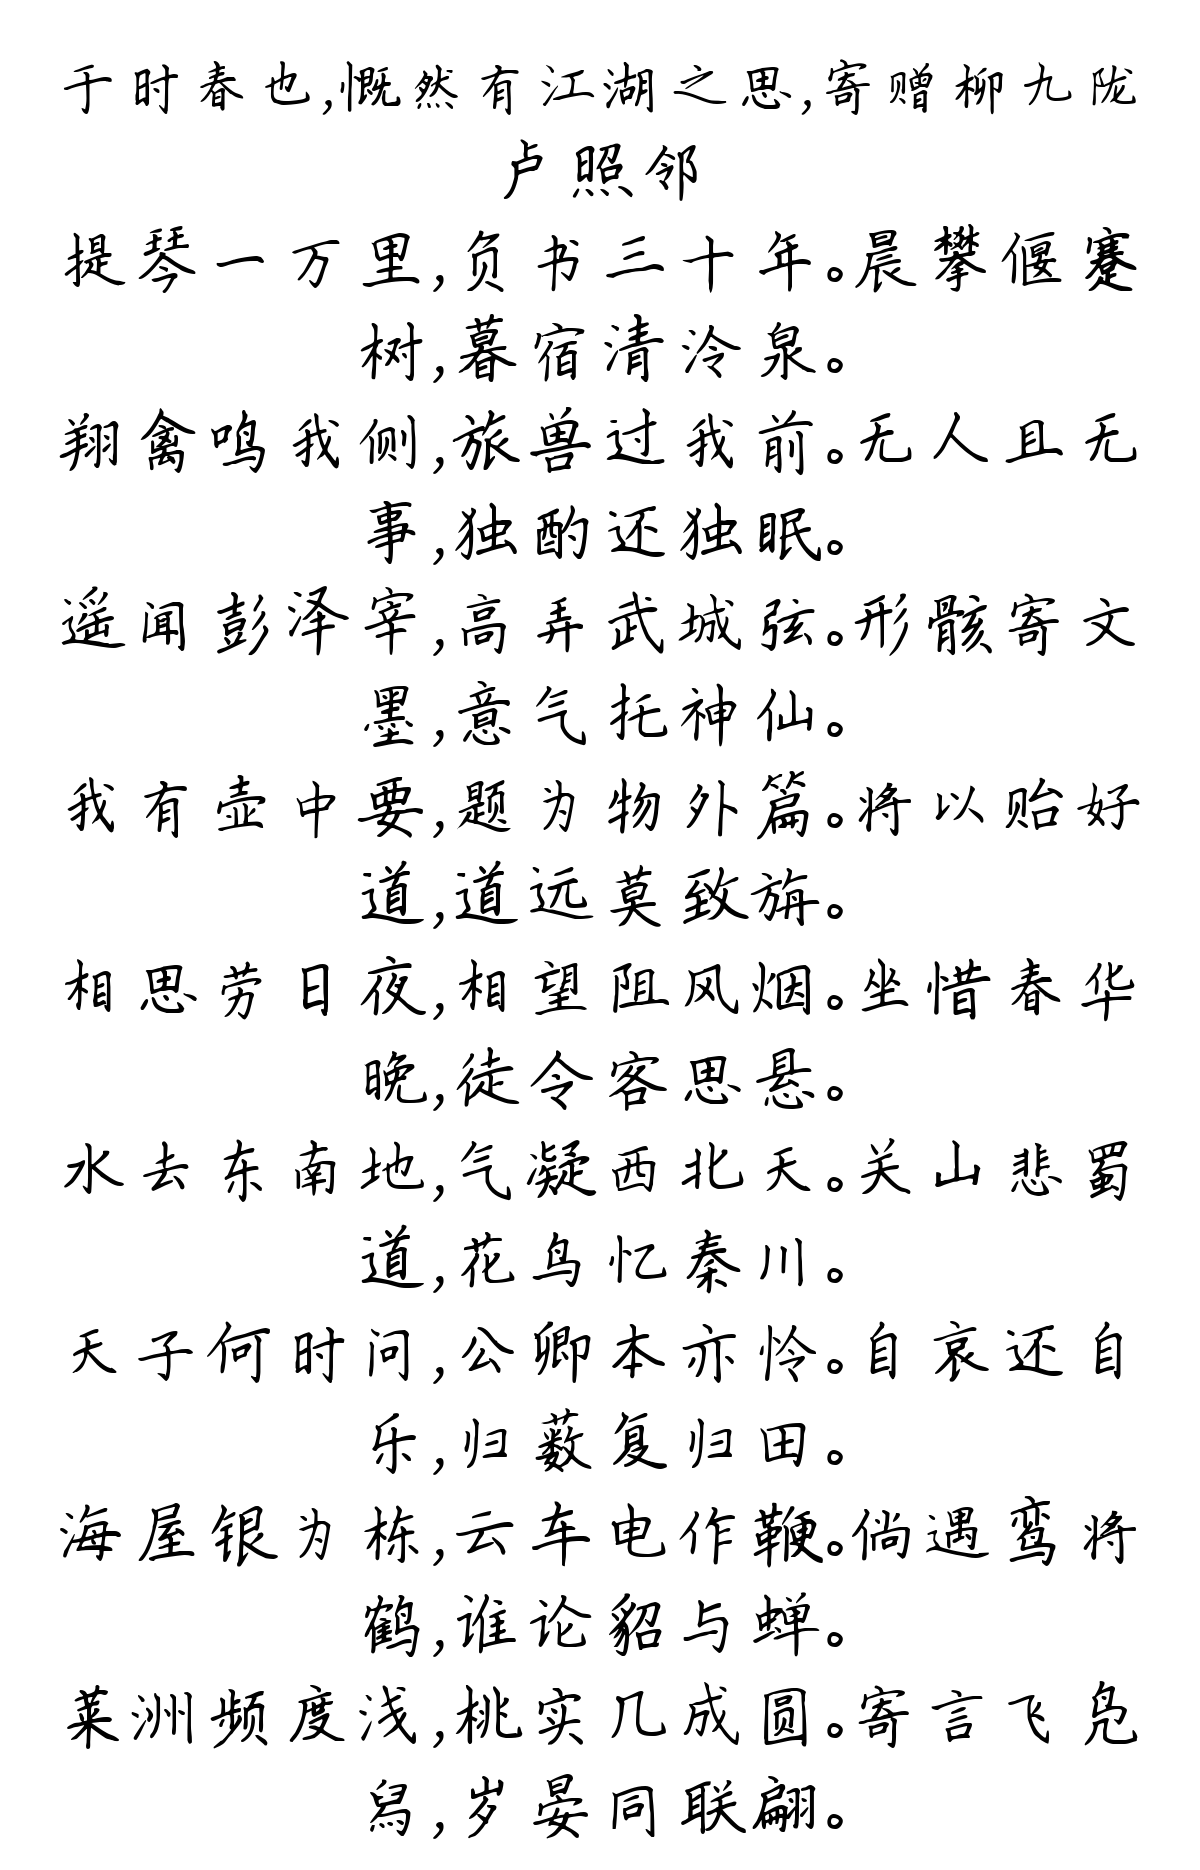 于时春也,慨然有江湖之思,寄赠柳九陇
卢照邻
提琴一万里,负书三十年。晨攀偃蹇
树,暮宿清泠泉。
翔禽鸣我侧,旅兽过我前。无人且无
事,独酌还独眠。
遥闻彭泽宰,高弄武城弦。形骸寄文
墨,意气托神仙。
我有壶中要,题为物外篇。将以贻好
道,道远莫致旃。
相思劳日夜,相望阻风烟。坐惜春华
晚,徒令客思悬。
水去东南地,气凝西北天。关山悲蜀
道,花鸟忆秦川。
天子何时问,公卿本亦怜。自哀还自
乐,归薮复归田。
海屋银为栋,云车电作鞭。倘遇鸾将
鹤,谁论貂与蝉。
莱洲频度浅,桃实几成圆。寄言飞凫
舄,岁晏同联翩。